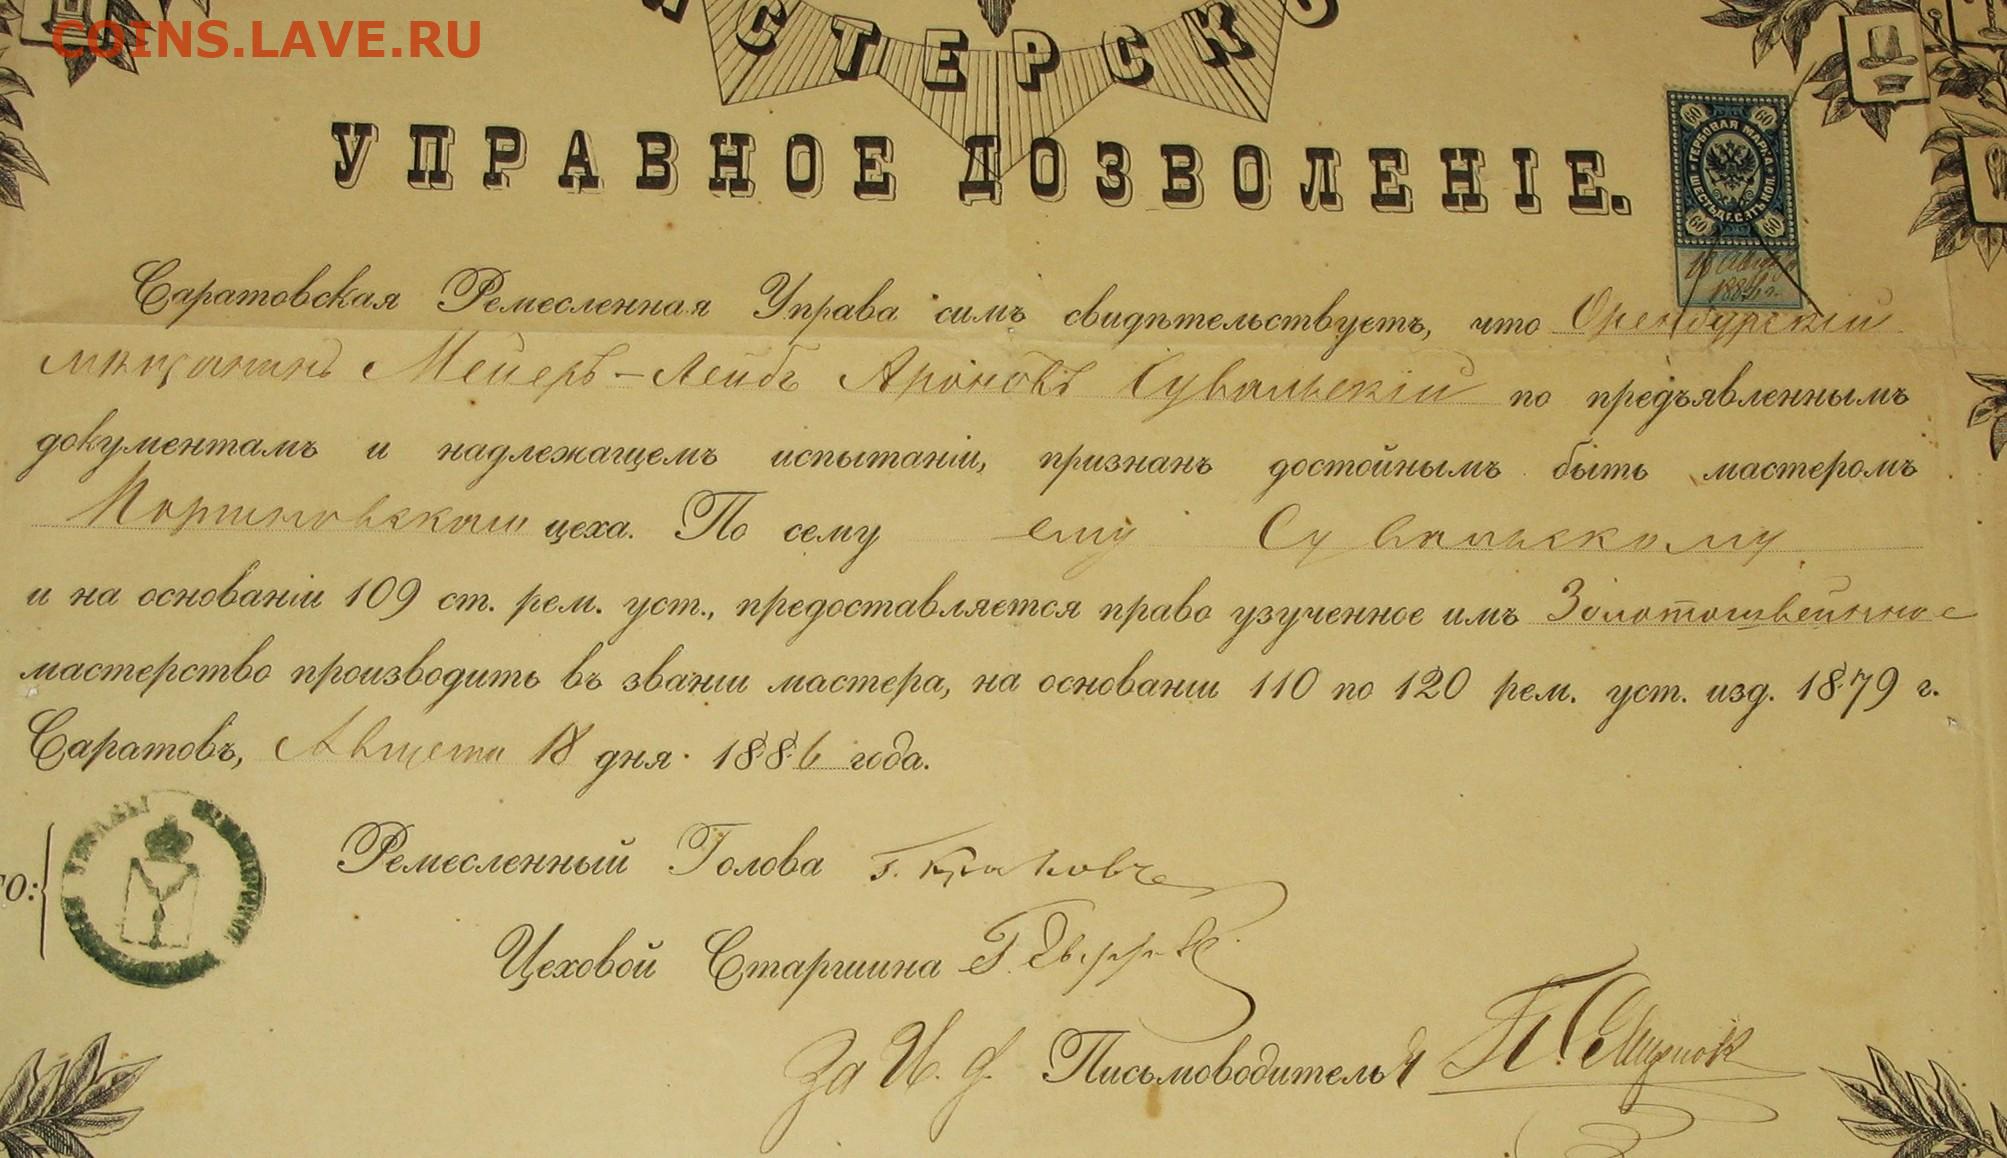 COINS.LAVE.RU
СТЕРСК
УПРАВНОЕ ДОЗВОЛЕНІЕ.
60 60
ГЕРБОВАЯ МАРКА
ШЕСТЬДЕСЯТЪ КОП.
60 60
18 Августа
1886 г.
Саратовская Ремесленная Управа симъ свидѣтельствуетъ, что Оренбурскій
мещанинъ Мейеръ-Лейбъ Ароновъ Сувальскій по предъявленнымъ
документамъ и надлежащемъ испытаніи, признанъ достойнымъ быть мастеромъ
цеха. По сему ему Сувальскому
и на основаніи 109 ст. рем. уст., предоставляется право узученное имъ Золотошвейнное
мастерство производить въ званіи мастера, на основаніи 110 по 120 рем. уст. изд. 1879 г.
Саратовъ, Августа 18 дня 1886 года.
ГО:
Ремесленный Голова
Цеховой Старшина Г.
За И. ф. Письмоводителя